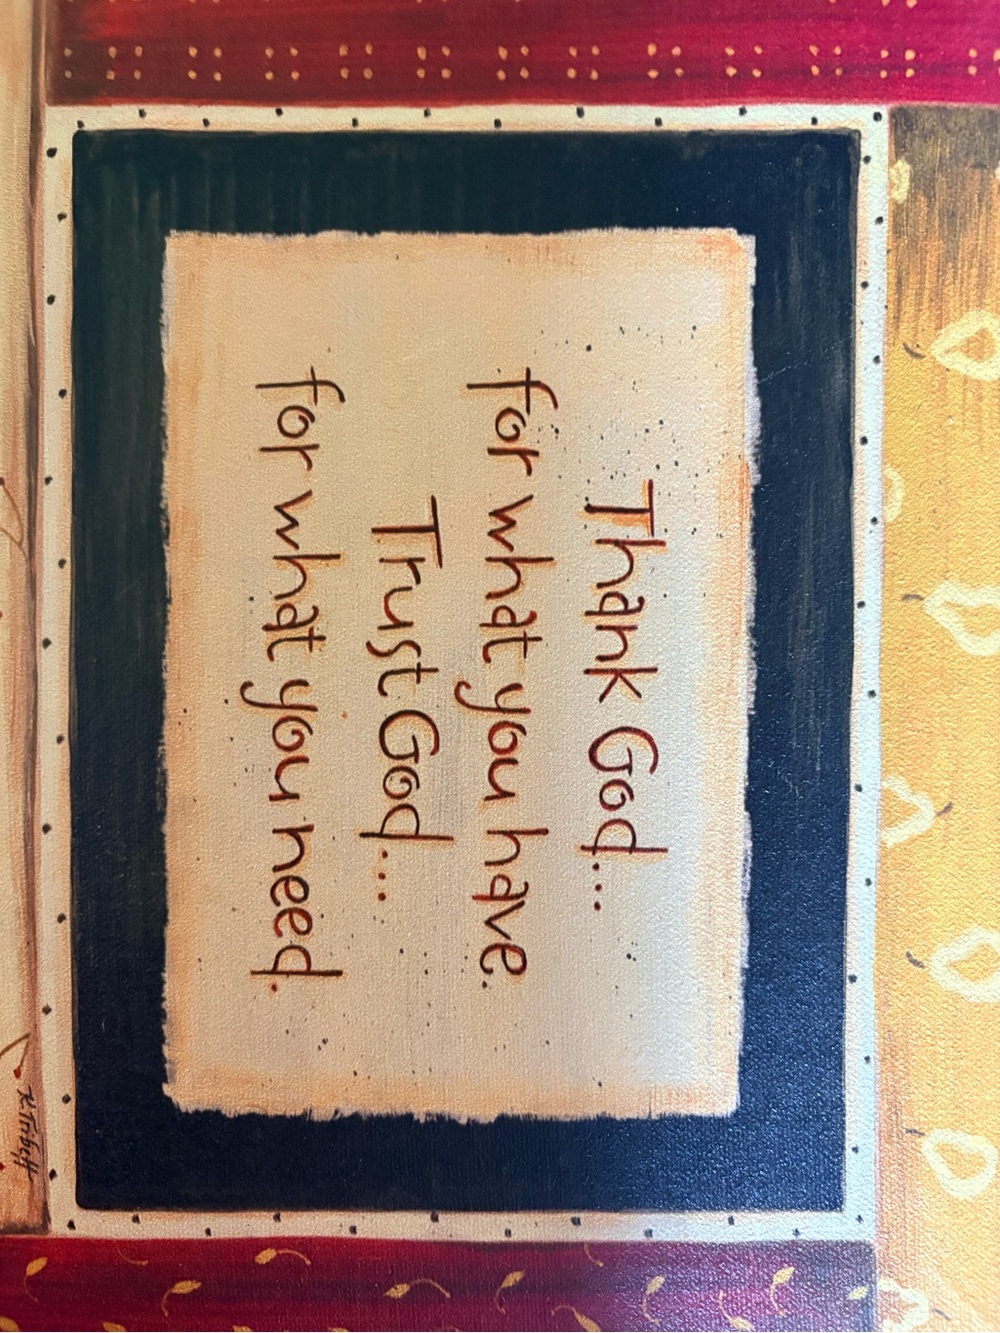 Thank God...
for what you have.
Trust God....
for what you need.